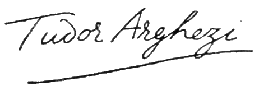 Tudor Arghezi